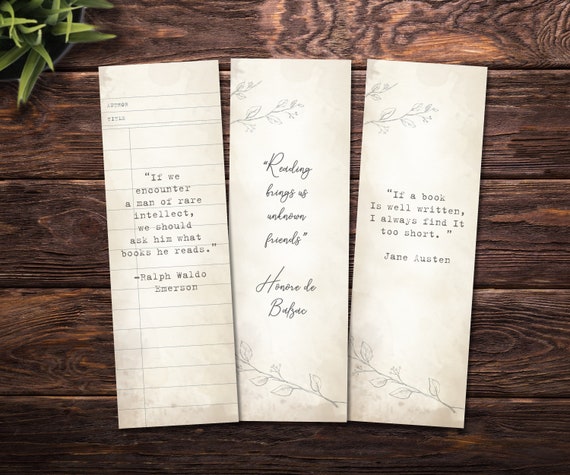 AUTHOR
TITLE
“If we
encounter
a man of rare
intellect,
we should
ask him what
books he reads.”
-Ralph Waldo
Emerson
“Reading
brings us
unknown
friends”
Honore de
Balzac
"If a book
Is well written,
I always find It
too short. ”
Jane Austen